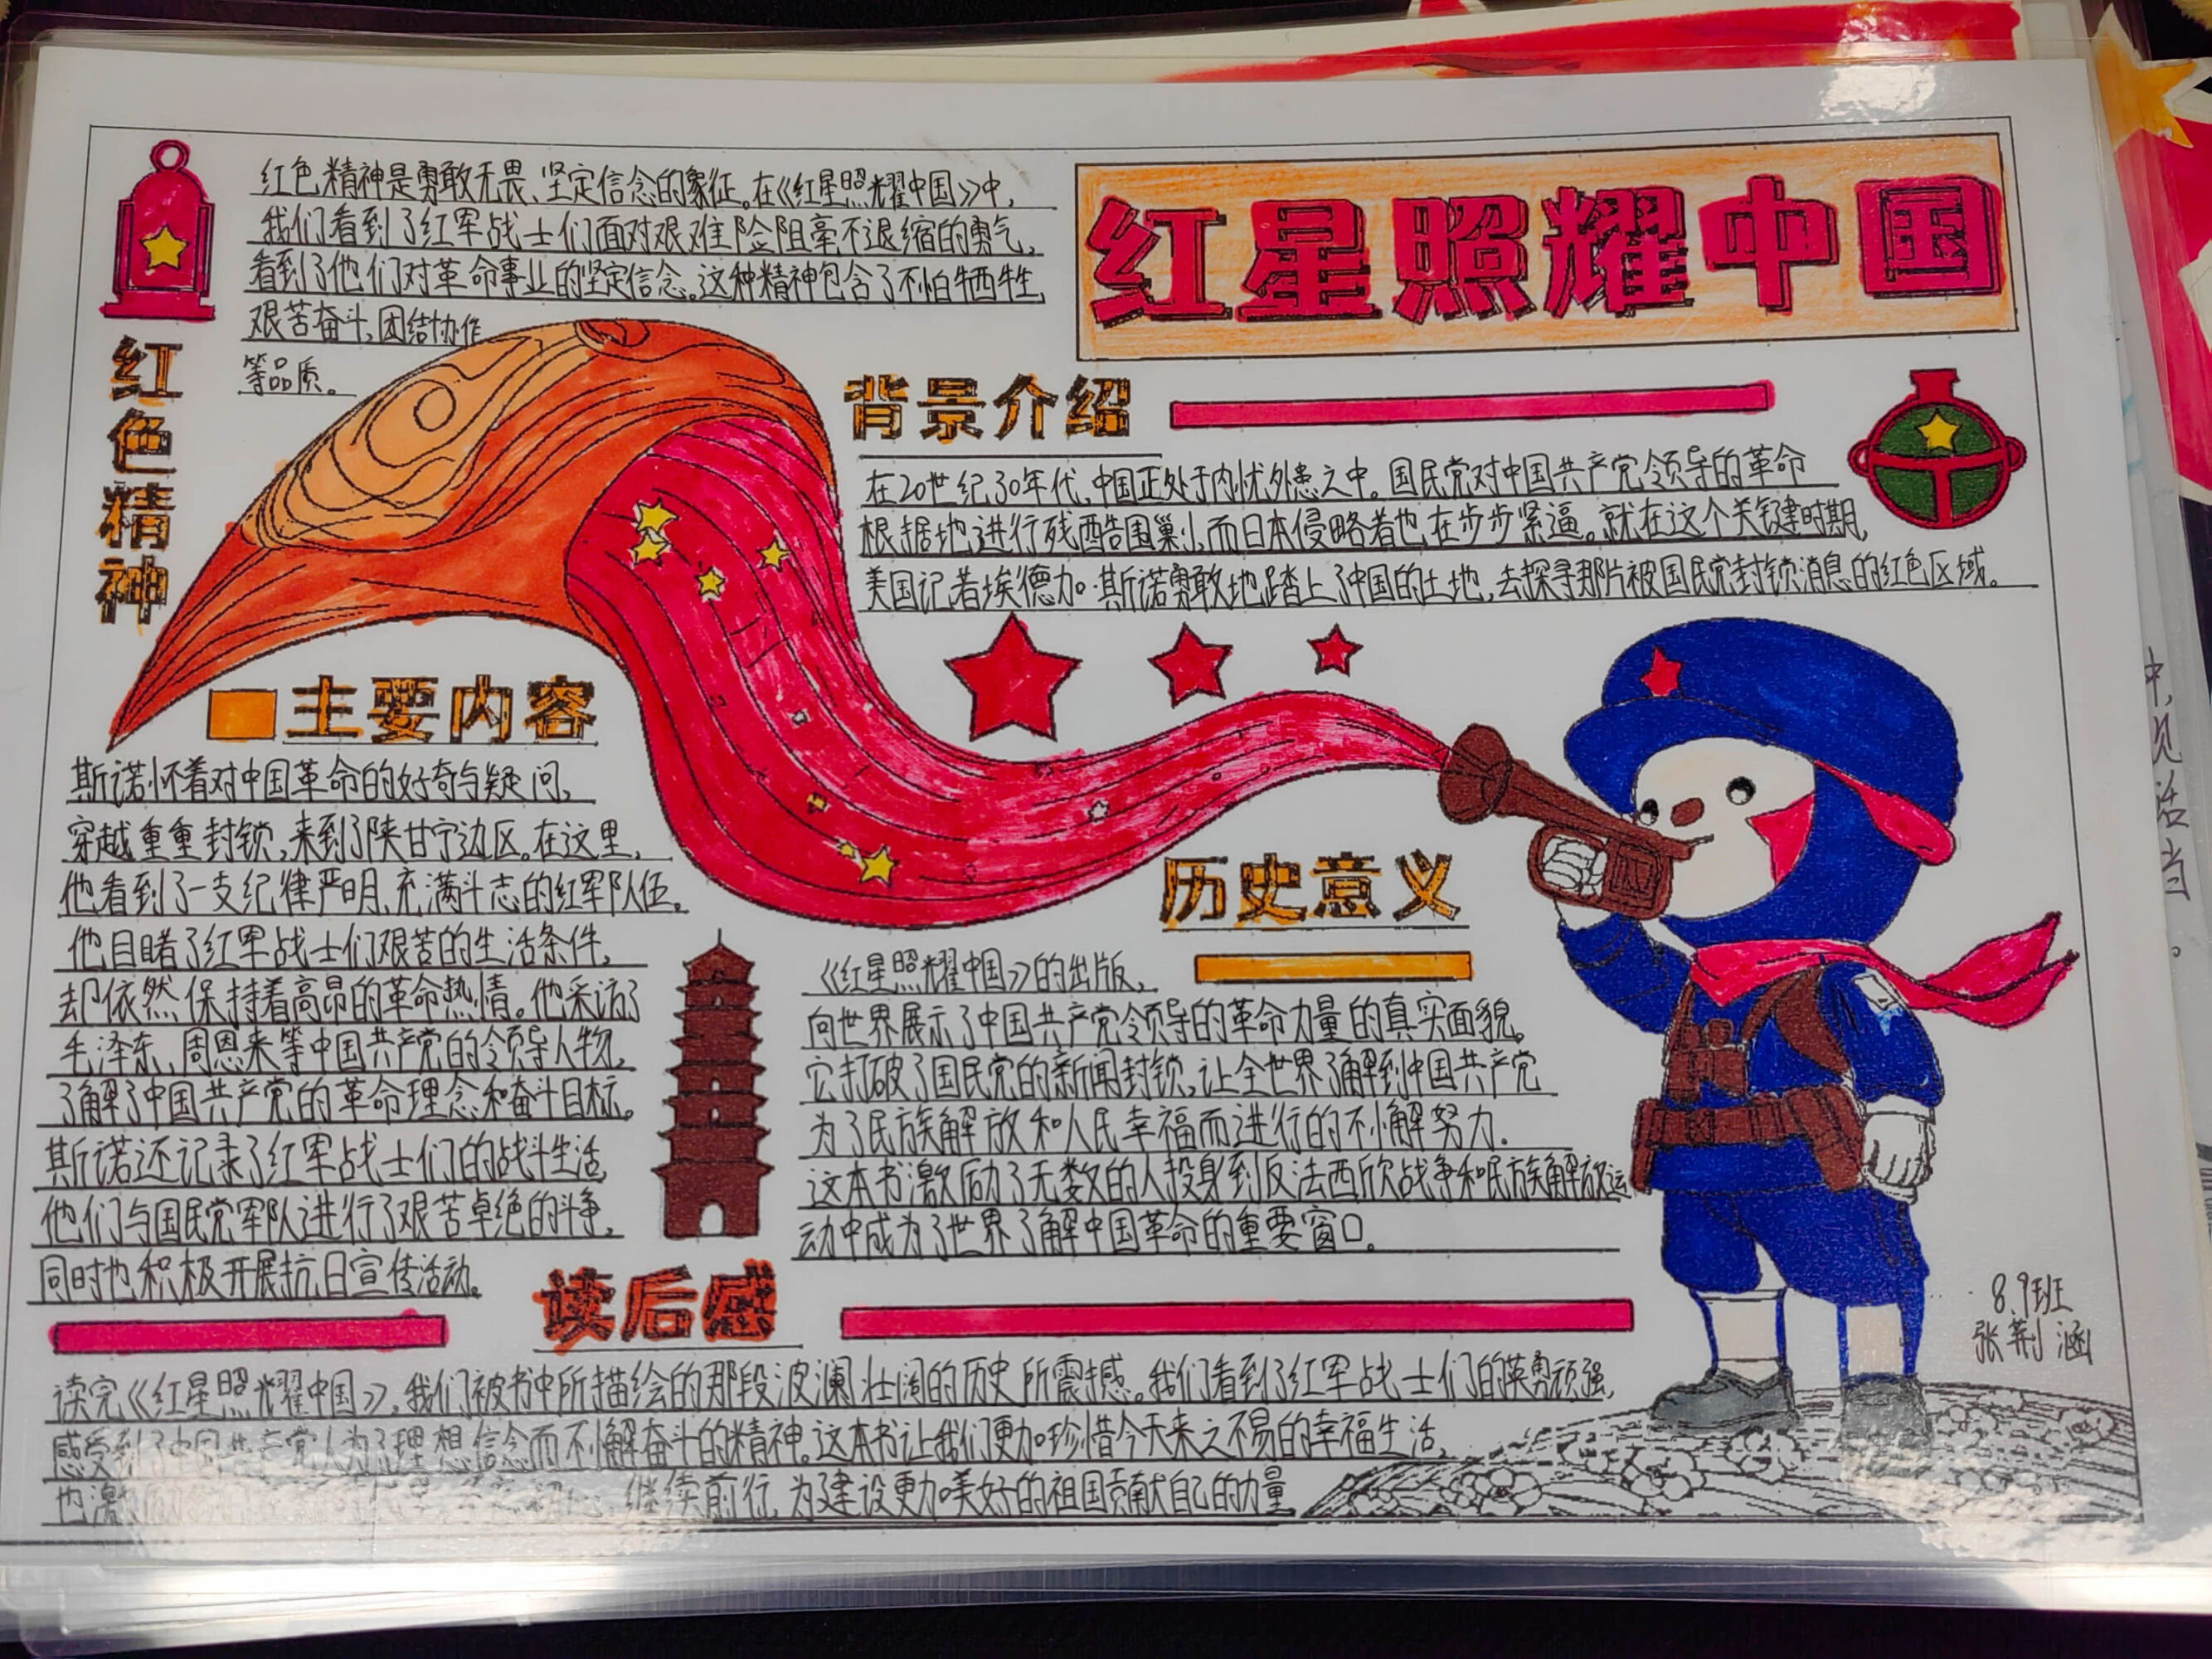 红星照耀中国
红色精神
红色精神是勇敢无畏、坚定信念的象征。在《红星照耀中国》中,
我们看到了红军战士们面对艰难险阻毫不退缩的勇气,
看到了他们对革命事业的坚定信念。这种精神包含了不怕牺牲
艰苦奋斗、团结协作
等品质。
背景介绍
在20世纪30年代,中国正处于内忧外患之中。国民党对中国共产党领导的革命
根据地进行残酷围巢小,而日本侵略者也在步步紧逼。就在这个关键时期,
美国记者埃德加·斯诺勇敢地踏上了中国的土地,去探寻那片被国民党封锁消息的红色区域。
主要内容
斯诺怀着对中国革命的好奇与疑问,
穿越重重封锁,来到了陕甘宁边区。在这里,
他看到了一支纪律严明、充满斗志的红军队伍。
他目睹了红军战士们艰苦的生活条件,
却依然保持着高昂的革命热情。他采访了
毛泽东、周恩来等中国共产党的领导人物,
了解了中国共产党的革命理念和奋斗目标。
斯诺还记录了红军战士们的战斗生活,
他们与国民党军队进行了艰苦卓绝的斗争,
同时也积极开展抗日宣传活动。
历史意义
《红星照耀中国》的出版,
向世界展示了中国共产党领导的革命力量的真实面貌。
它打破了国民党的新闻封锁,让全世界了解到中国共产党
为了民族解放和人民幸福而进行的不懈努力.
这本书激励了无数的人投身到反法西欣战争和民族解放运
动中成为了世界了解中国革命的重要窗口。
读后感
读完《红星照耀中国》,我们被书中所描绘的那段波澜壮阔的历史所震撼。我们看到了红军战士们的英勇顽强,
感受到了中国共产党人为了理想信念而不懈奋斗的精神。这本书让我们更加珍惜今天来之不易的幸福生活,
也激励 继续前行,为建设更加美好的祖国贡献自己的力量
8.9班
张荆涵